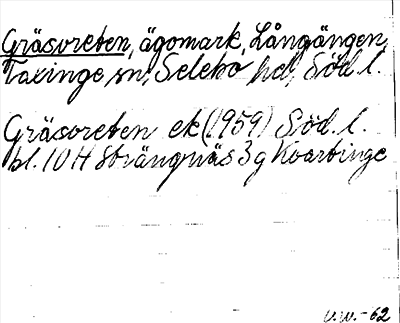 Gräsvreten, ägomark, Långängen,
Taxinge sn, Selebo hd, Söd. l.
Gräsvreten ek (1959) Söd. l.
bl. 10H Strängnäs 3g Kvartinge
-62